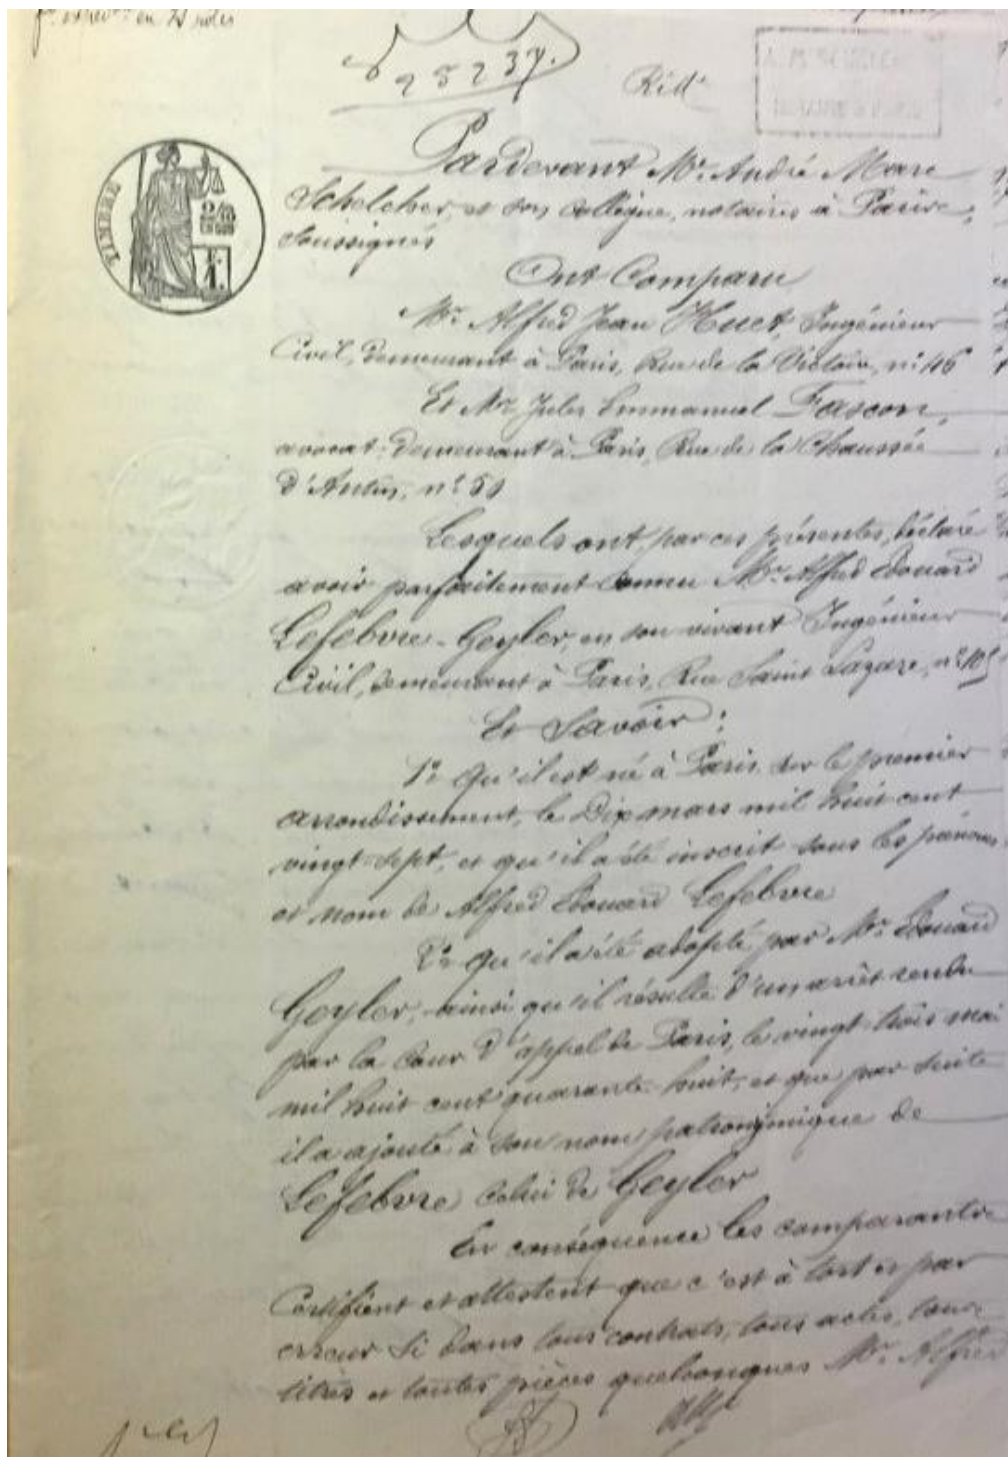 en 21 roles
25237.
Red.
TIMBRE
Pardevant Mᵉ André Marc
Schelcher, et son Collègue, notaires à Paris,
soussignés
Ont Comparu
Mr. Alfred Jean Huet, Ingénieur
Civil, demeurant à Paris, Rue de la Victoire, n° 46
Et Mr. Jules Emmanuel Fascon,
avocat, demeurant à Paris, Rue de la Chaussée
d'Antin, n°
Lesquels ont, par ces présentes, déclaré
avoir parfaitement connu Mr. Alfred Edouard
Lefebvre-Geyler, en son vivant Ingénieur
Civil, demeurant à Paris, Rue Saint Lazare, n° 105
Et Savoir :
1° Qu'il est né à Paris, sur le premier
arrondissement, le Dix mars mil huit cent
vingt-sept, et qu'il a été inscrit sous les prénoms
et nom de Alfred Edouard Lefebvre
2° Qu'il a été adopté par Mr. Edouard
Geyler, ainsi qu'il résulte d'un arrêt rendu
par la Cour d'appel de Paris, le vingt-trois mai
mil huit cent quarante-huit, et que par suite
il a ajouté à son nom patronymique de
Lefebvre celui de Geyler
En conséquence les comparants
Certifient et attestent que c'est à tort et par
erreur si dans tous contrats, tous actes, tous
titres et toutes pièces quelconques Mr. Alfred